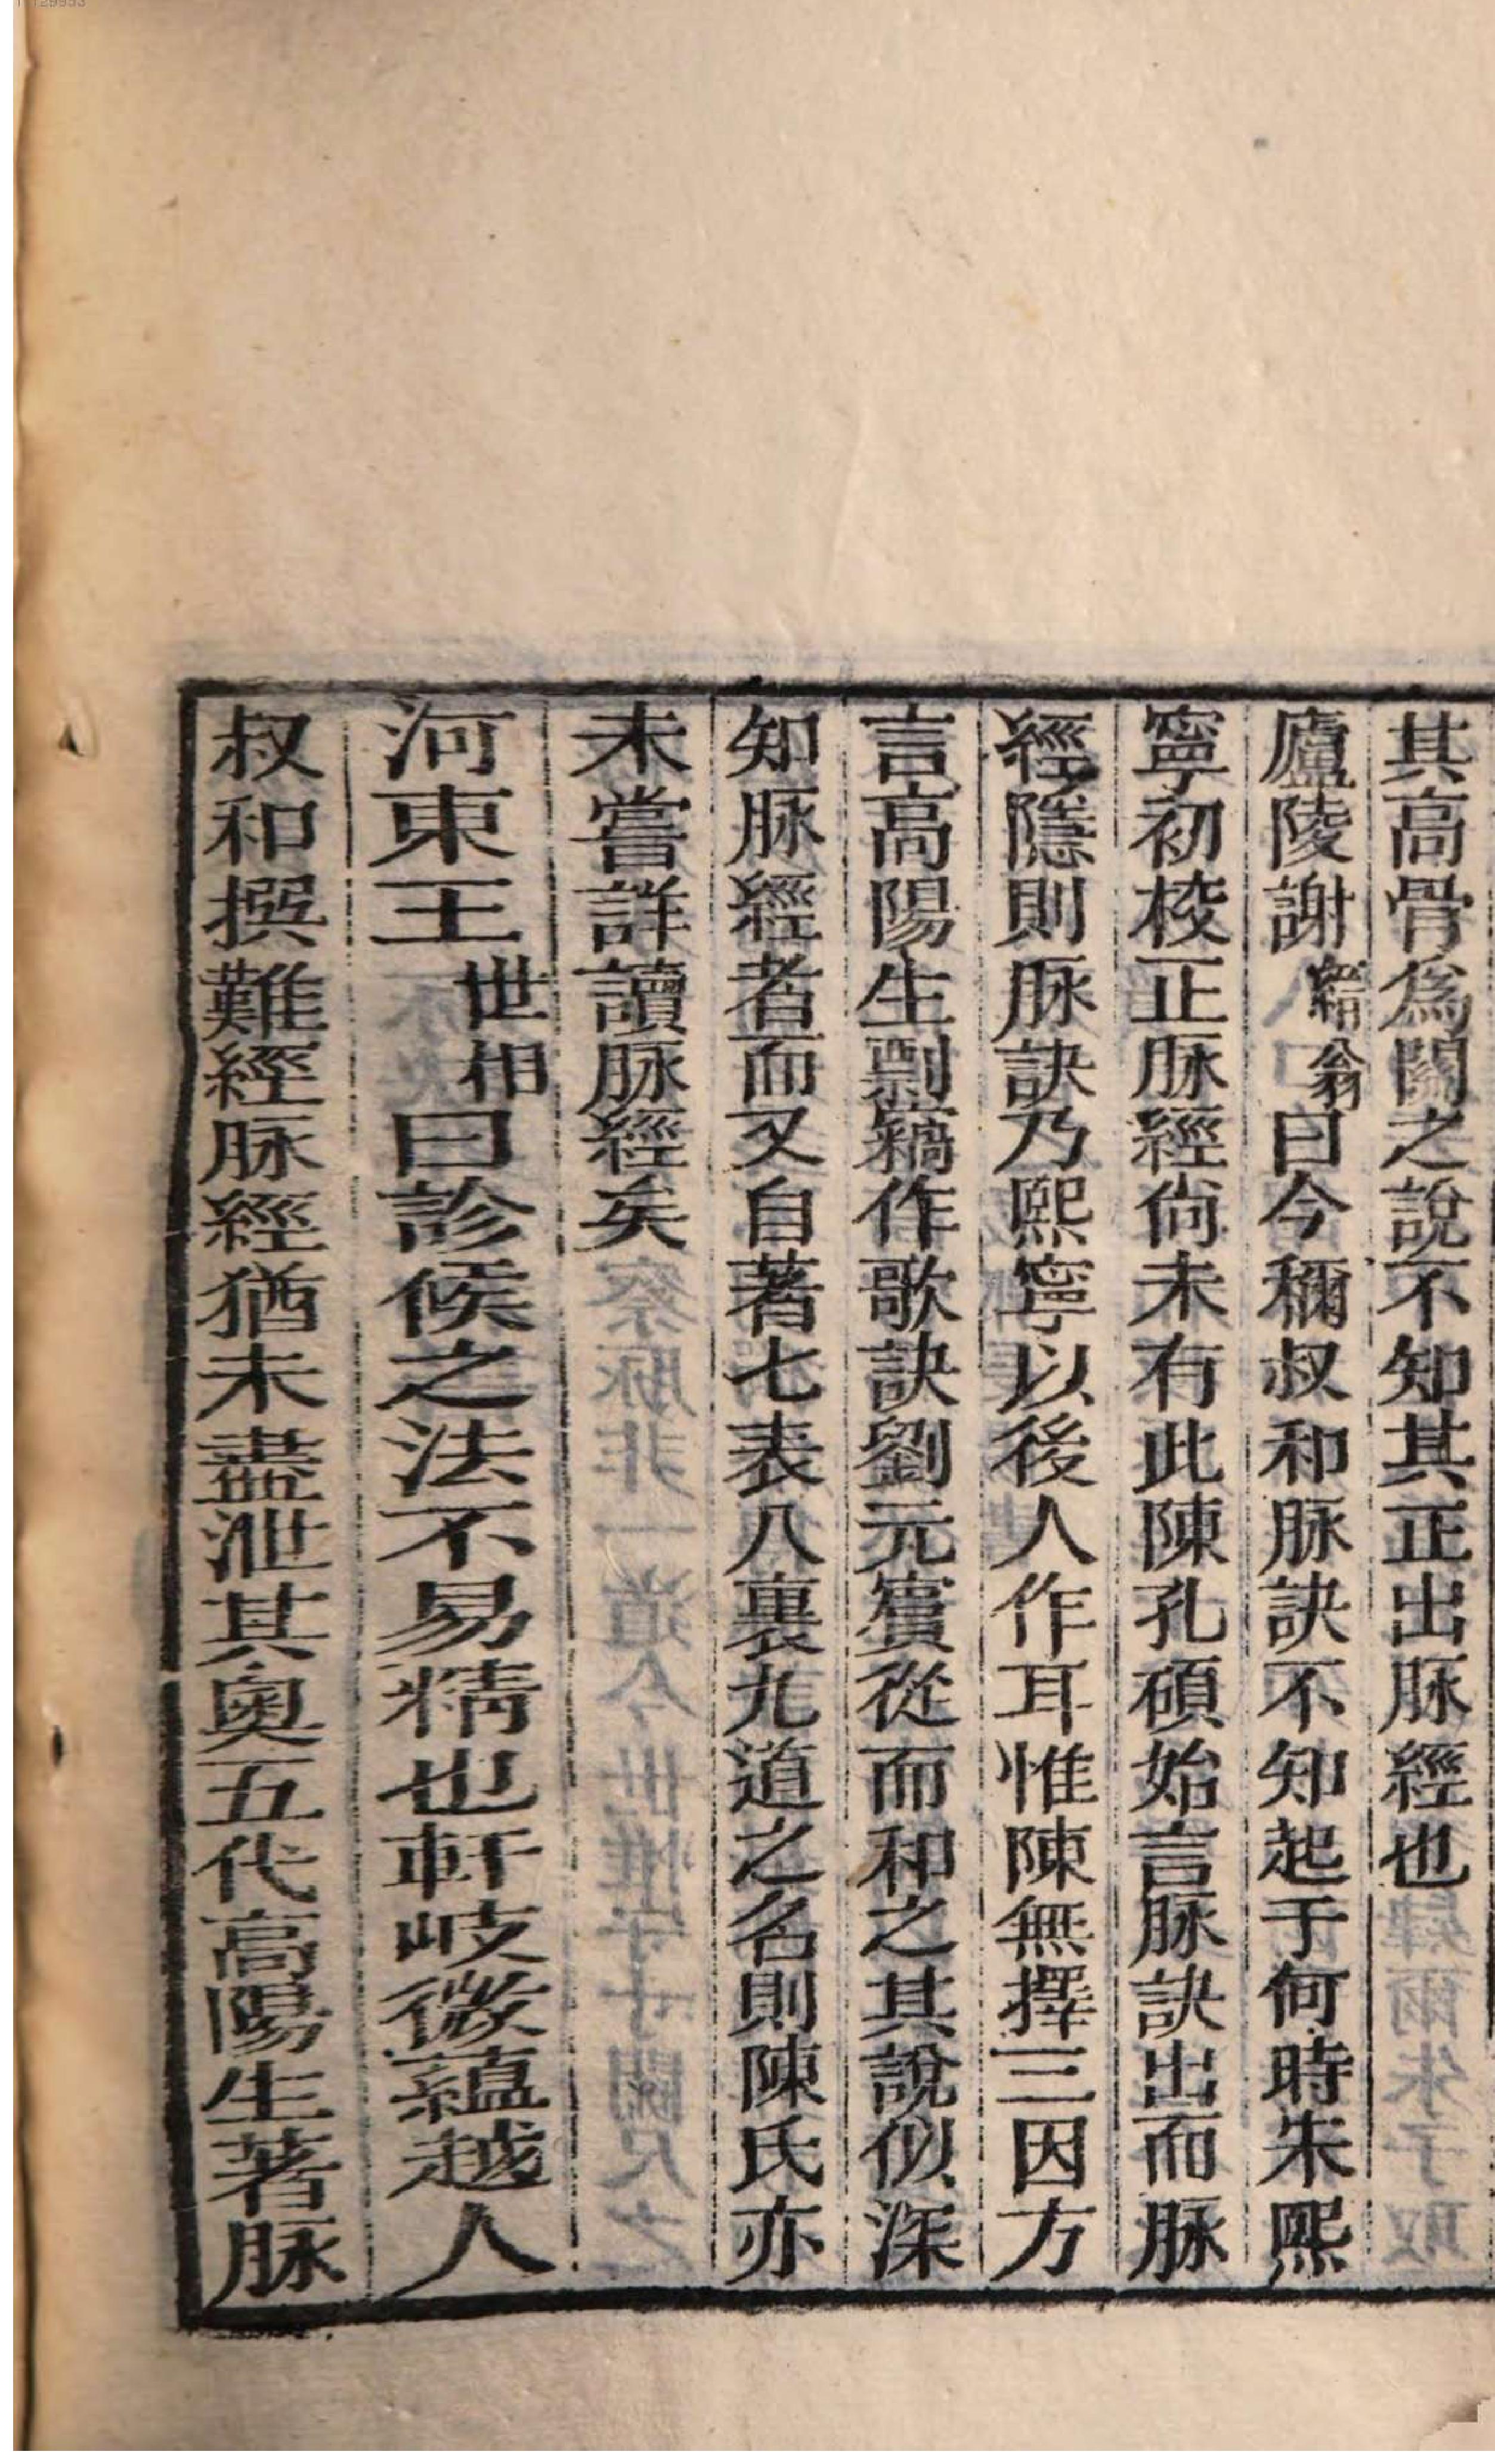 其高骨爲關之說不知其正出脉經也
廬陵謝縉翁曰今稱叔和脉訣不知起于何時朱熙
寧初校正脉經尙未有此陳孔碩始言脉訣出而脉
經隱則脉訣乃熙寧以後人作耳惟陳無擇三因方
言高陽生剽竊作歌訣劉元賓從而和之其說似深
知脉經者而又自著七表八裏九道之名則陳氏亦
未嘗詳讀脉經矣
河東王世相曰診候之法不易精也軒岐微蘊越人
叔和撰難經脉經猶未盡泄其奧五代高陽生著脉